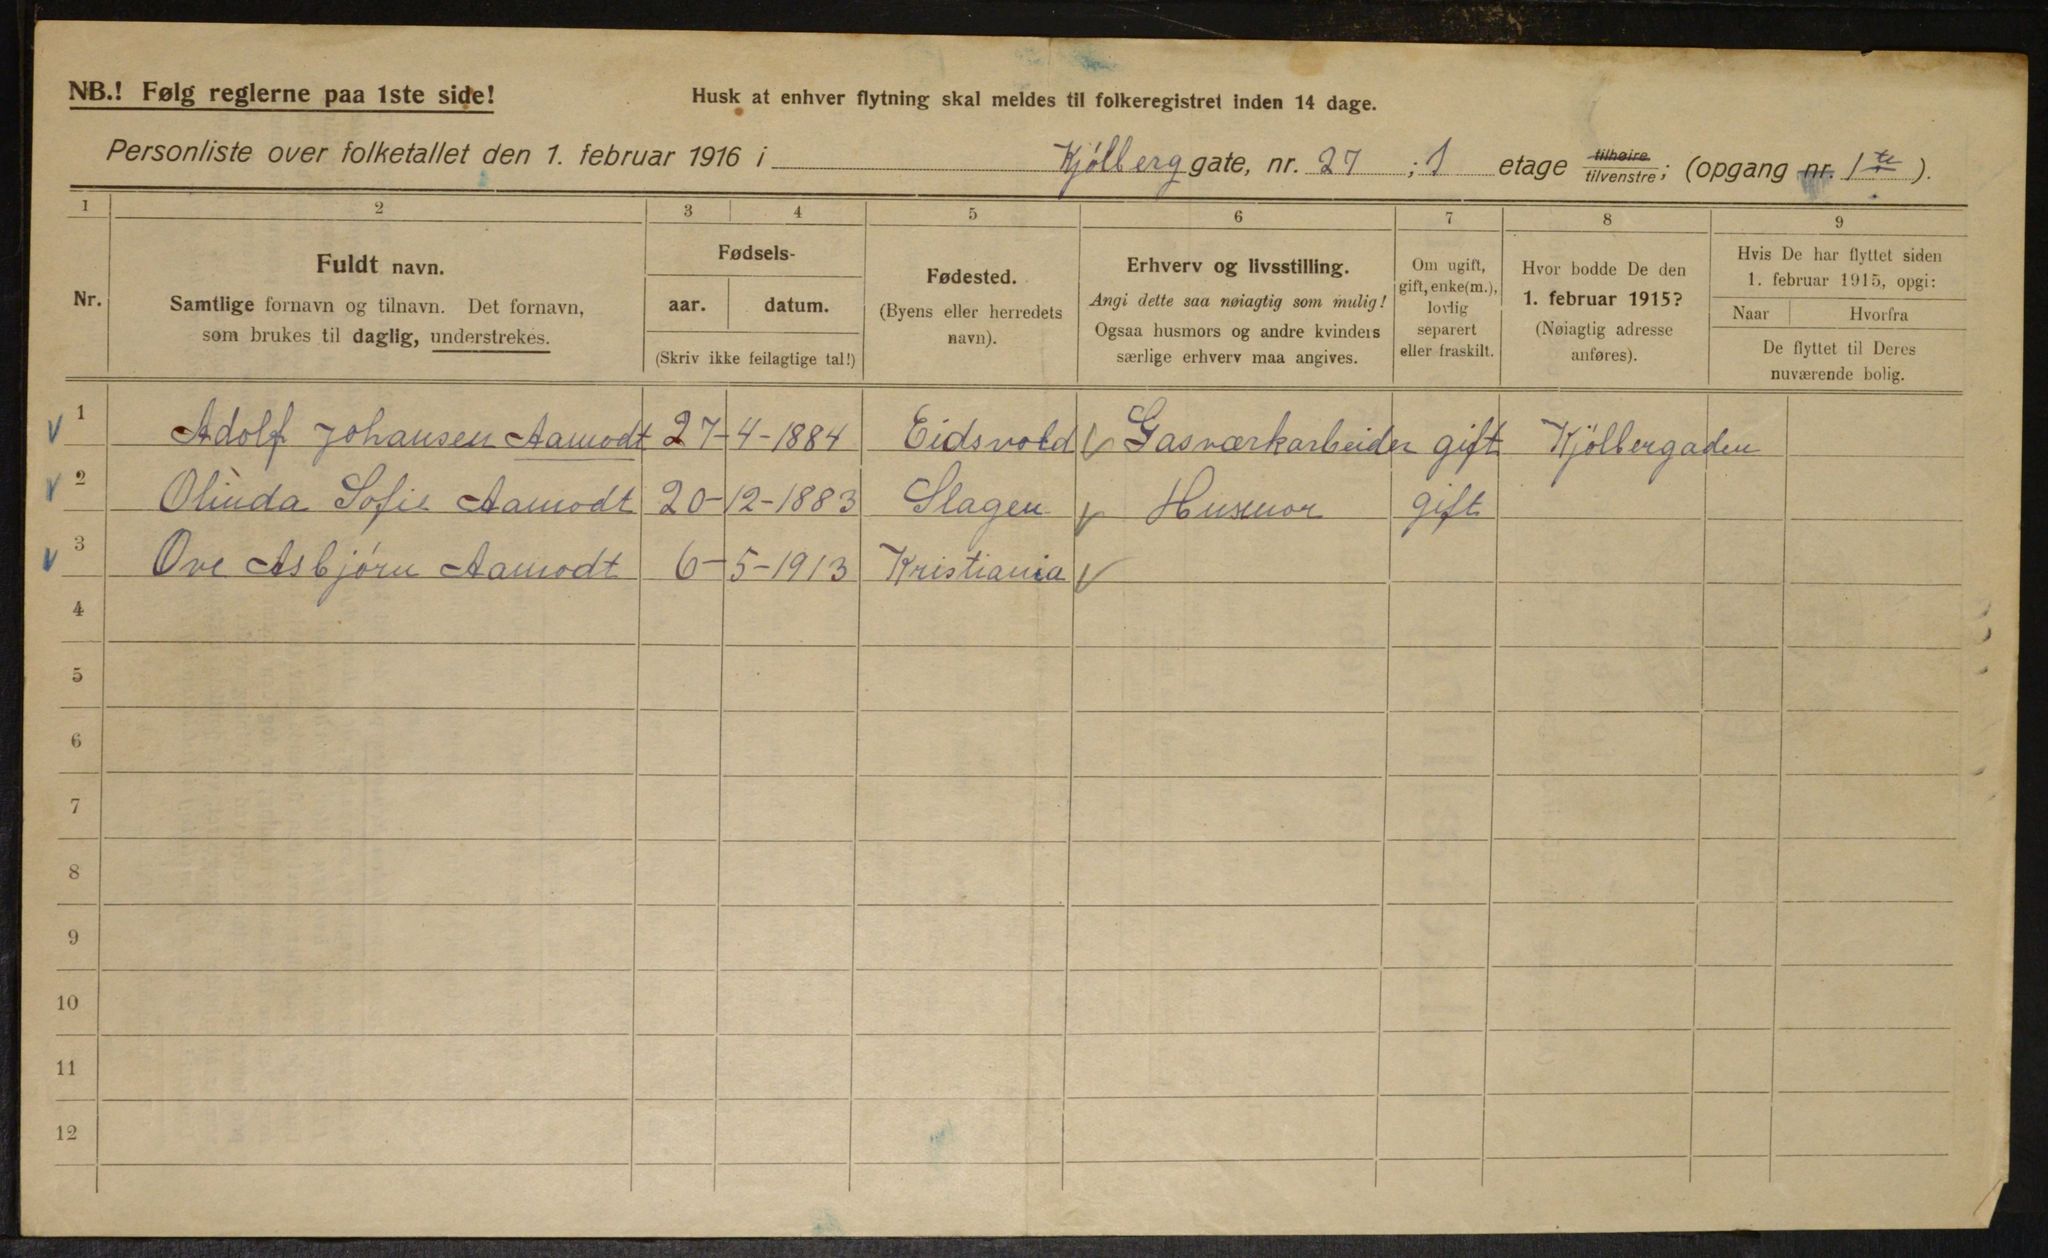 NB.! Følg reglerne paa 1ste side!
Husk at enhver flytning skal meldes til folkeregistret inden 14 dage.
Personliste over folketallet den 1. februar 1916 i Kjølberg gate, nr. 27 ; 1 etage tilhøire/tilvenstre; (opgang nr. 1 te).
1 2 3 4 5 6 7 8 9
Nr.
Fuldt navn.
Samtlige fornavn og tilnavn. Det fornavn,
som brukes til daglig, understrekes.
Fødsels-
aar. datum.
(Skriv ikke feilagtige tal!)
Fødested.
(Byens eller herredets
navn).
Erhverv og livsstilling.
Angi dette saa nøiagtig som mulig!
Ogsaa husmors og andre kvinders
særlige erhverv maa angives.
Om ugift,
gift, enke(m.),
lovlig
separert
eller fraskilt.
Hvor bodde De den
1. februar 1915?
(Nøiagtig adresse
anføres).
Hvis De har flyttet siden
1. februar 1915, opgi:
Naar Hvorfra
De flyttet til Deres
nuværende bolig.
1 Adolf Johansen Aamodt 27-4-1884 Eidsvold Gasværkarbeider gift Kjølbergaden
2 Olinda Sofie Aamodt 20-12-1883 Slagen Husmor gift
3 Ove Asbjørn Aamodt 6-5-1913 Kristiania
4
5
6
7
8
9
10
11
12